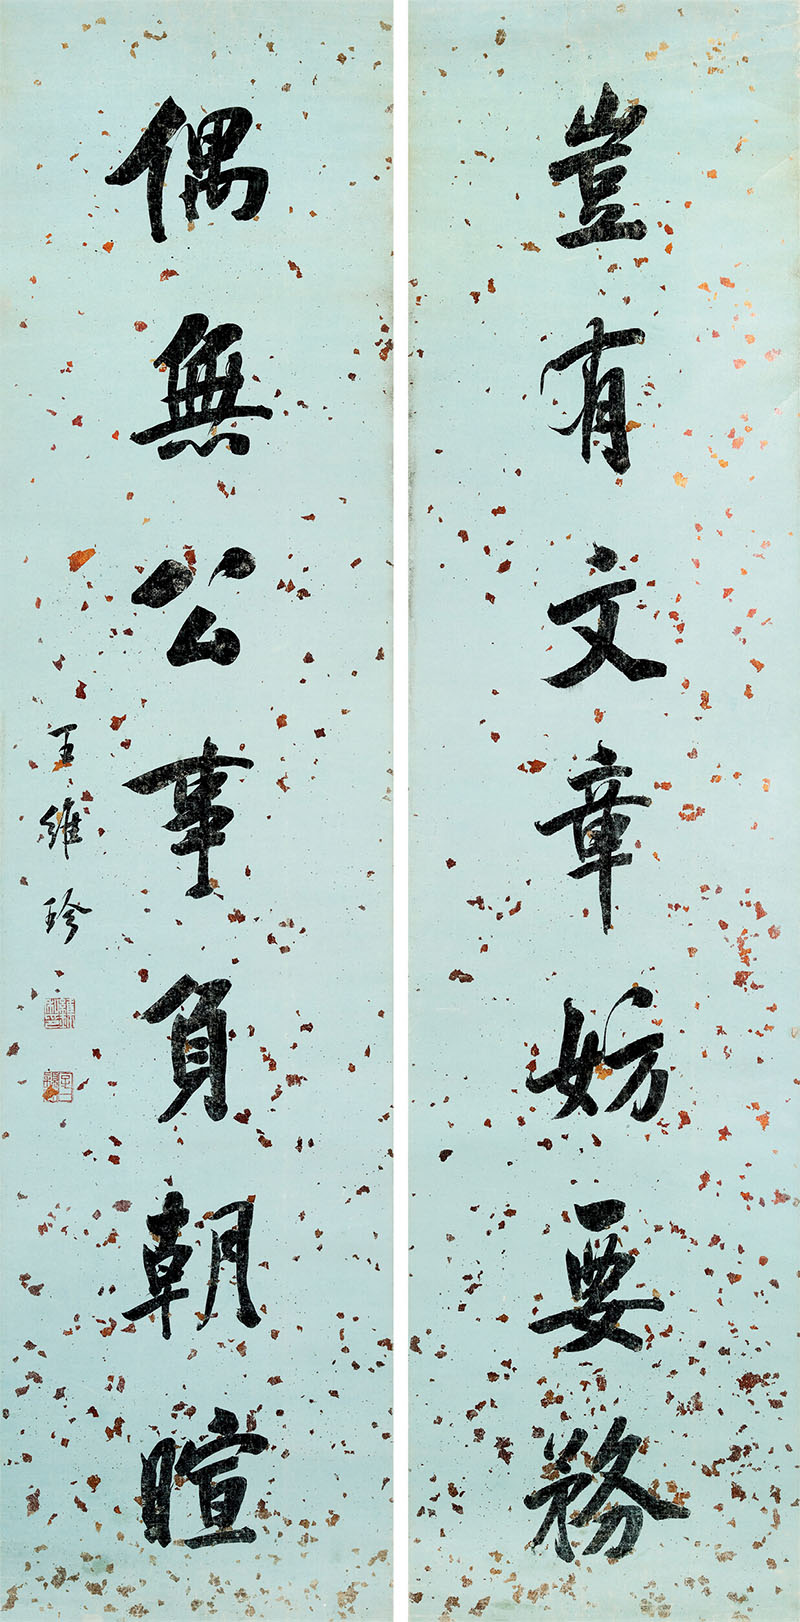 豈有文章妨要務
偶無公事負朝暄
王維珍